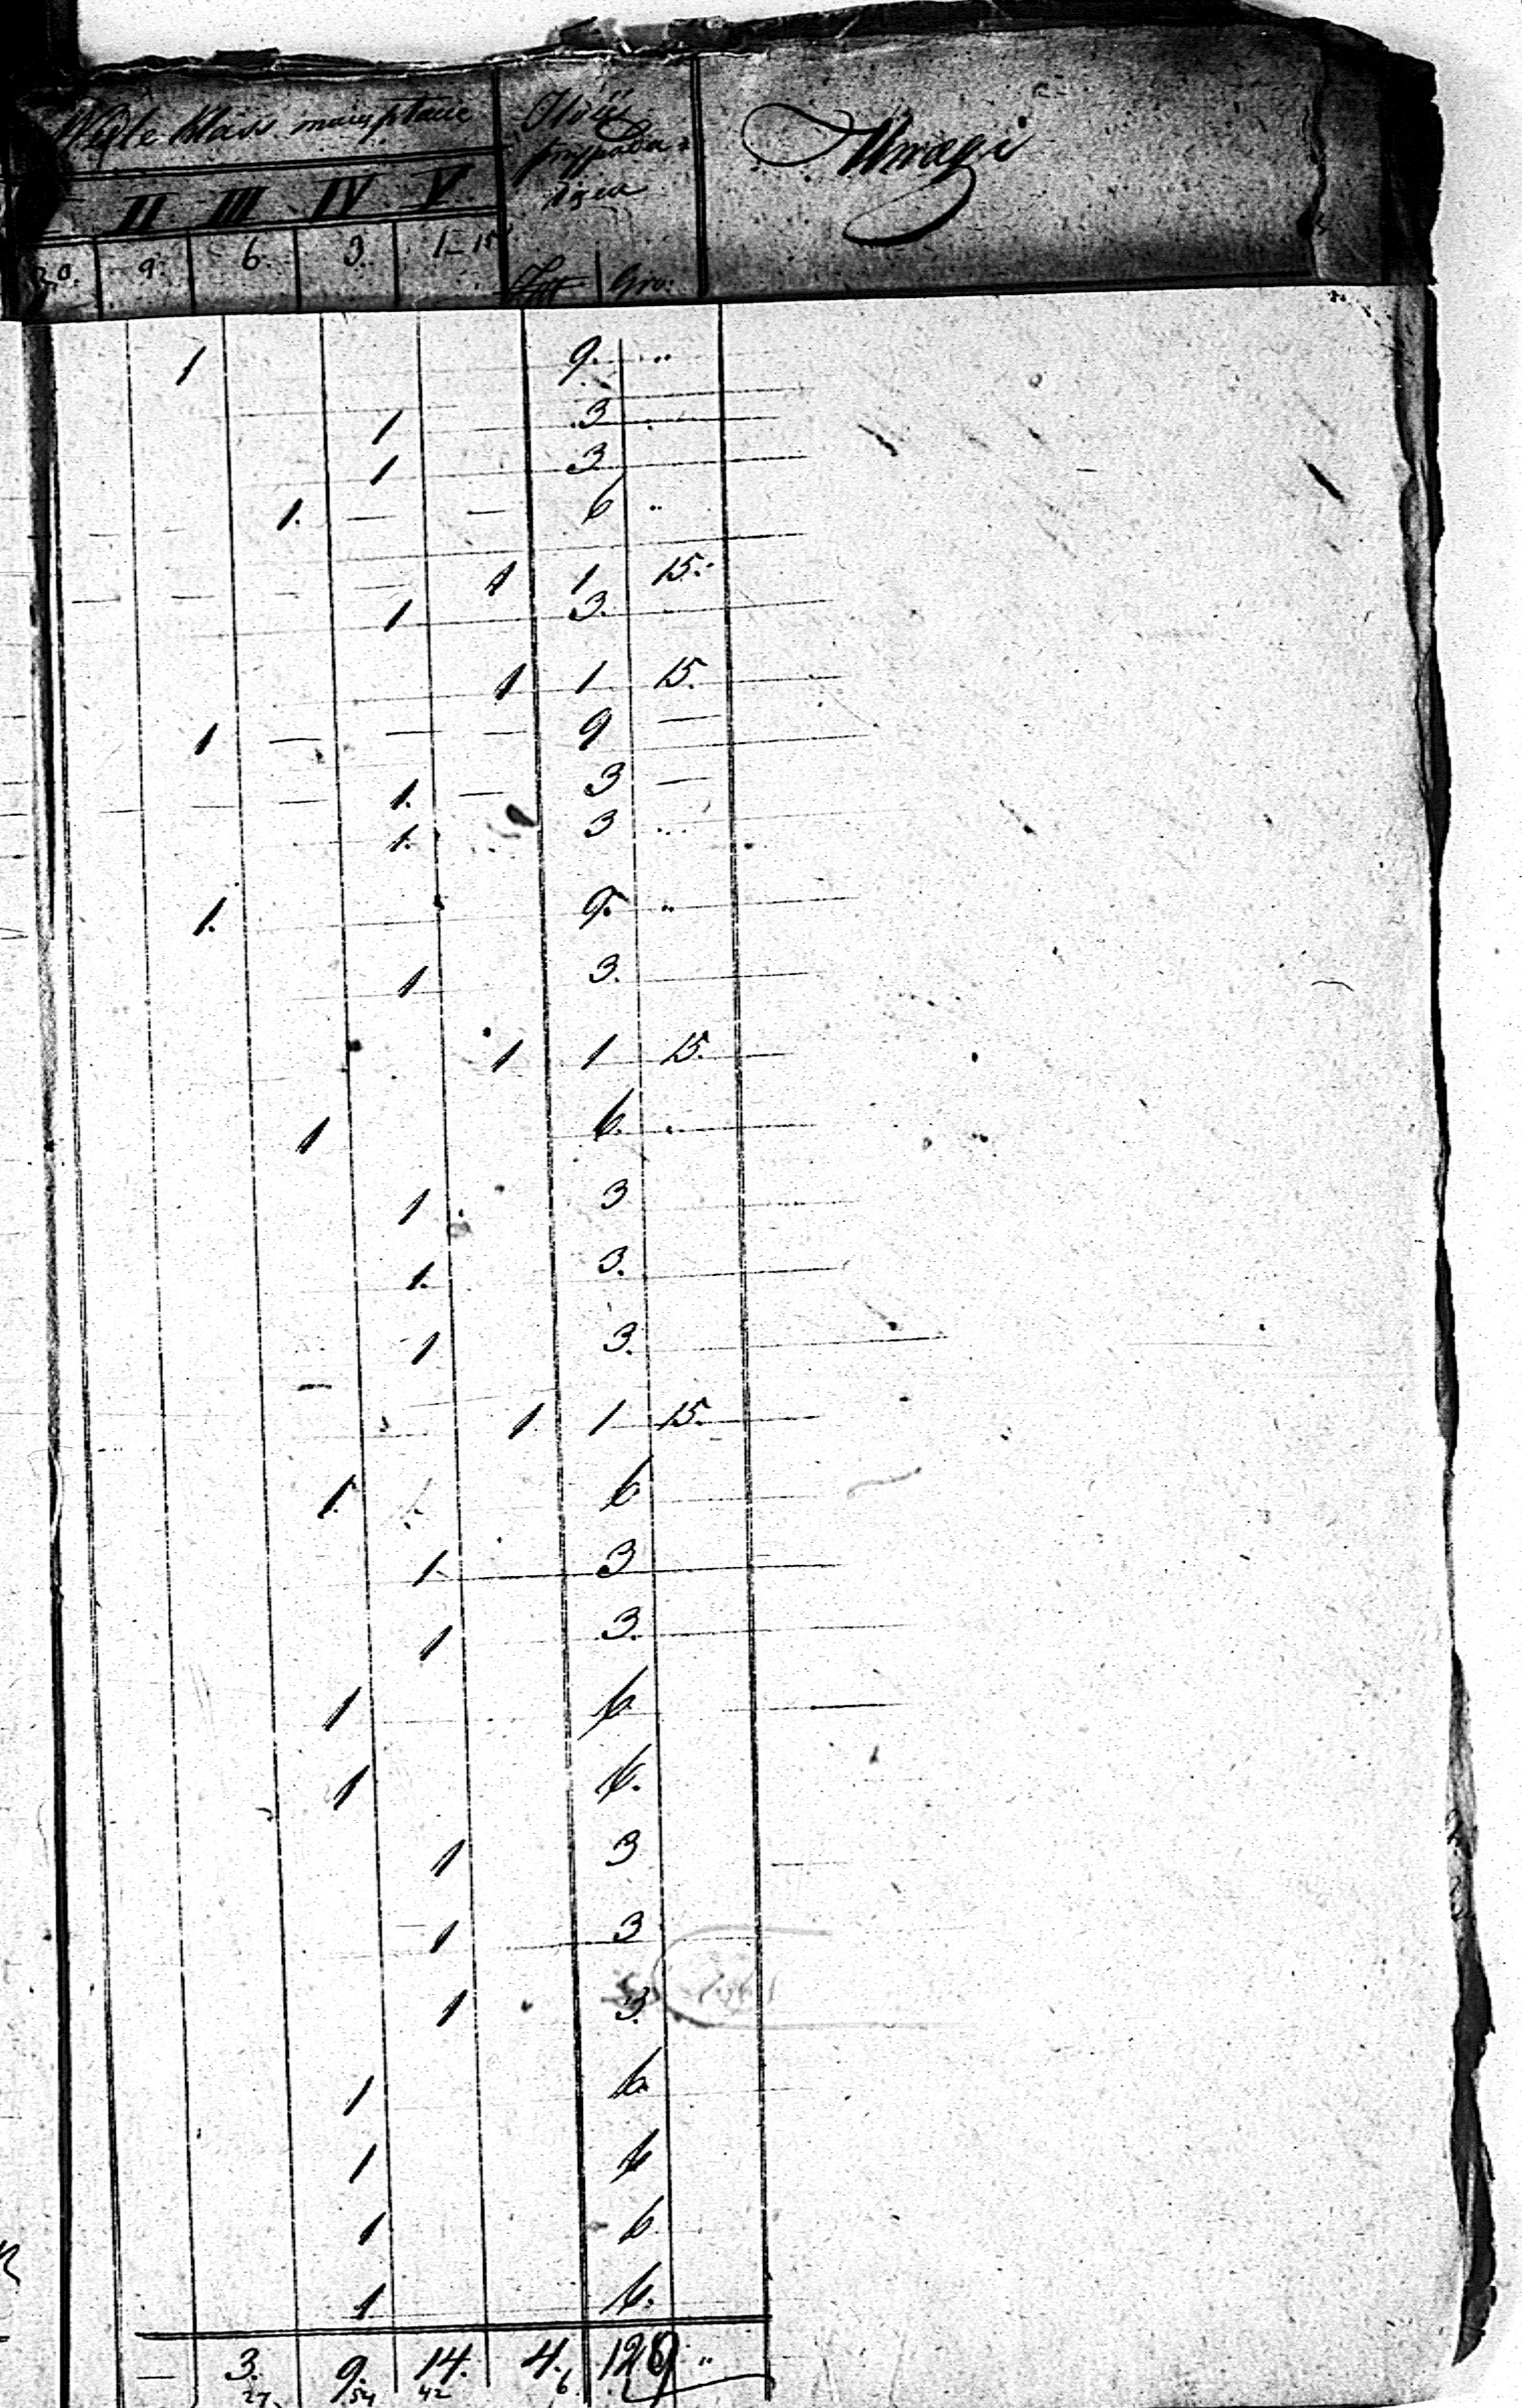 Wedle Klass maią płacić
II III IV V
20. 9. 6. 3. 1-15
Ilość
przypada=
iąca
Złtt Gro:
Uwagi
1 9. "
1 3 .
1 3
1. — — 6 "
1 1 15.
1 3.
1 1 15.
1 — — — 9 —
1. — 3 —
1. 3 ..
1. 9. "
1 3.
1 1 15.
1 6. "
1 3
1. 3.
1 3.
1. 1 15.
1. 6
1. 3
1 3.
1 6
1 6.
1 3
1 3
1 3.
1 6
1 6
1 6
1 6.
— 3. 9. 14. 4. 129 "
27. 54 42 6.